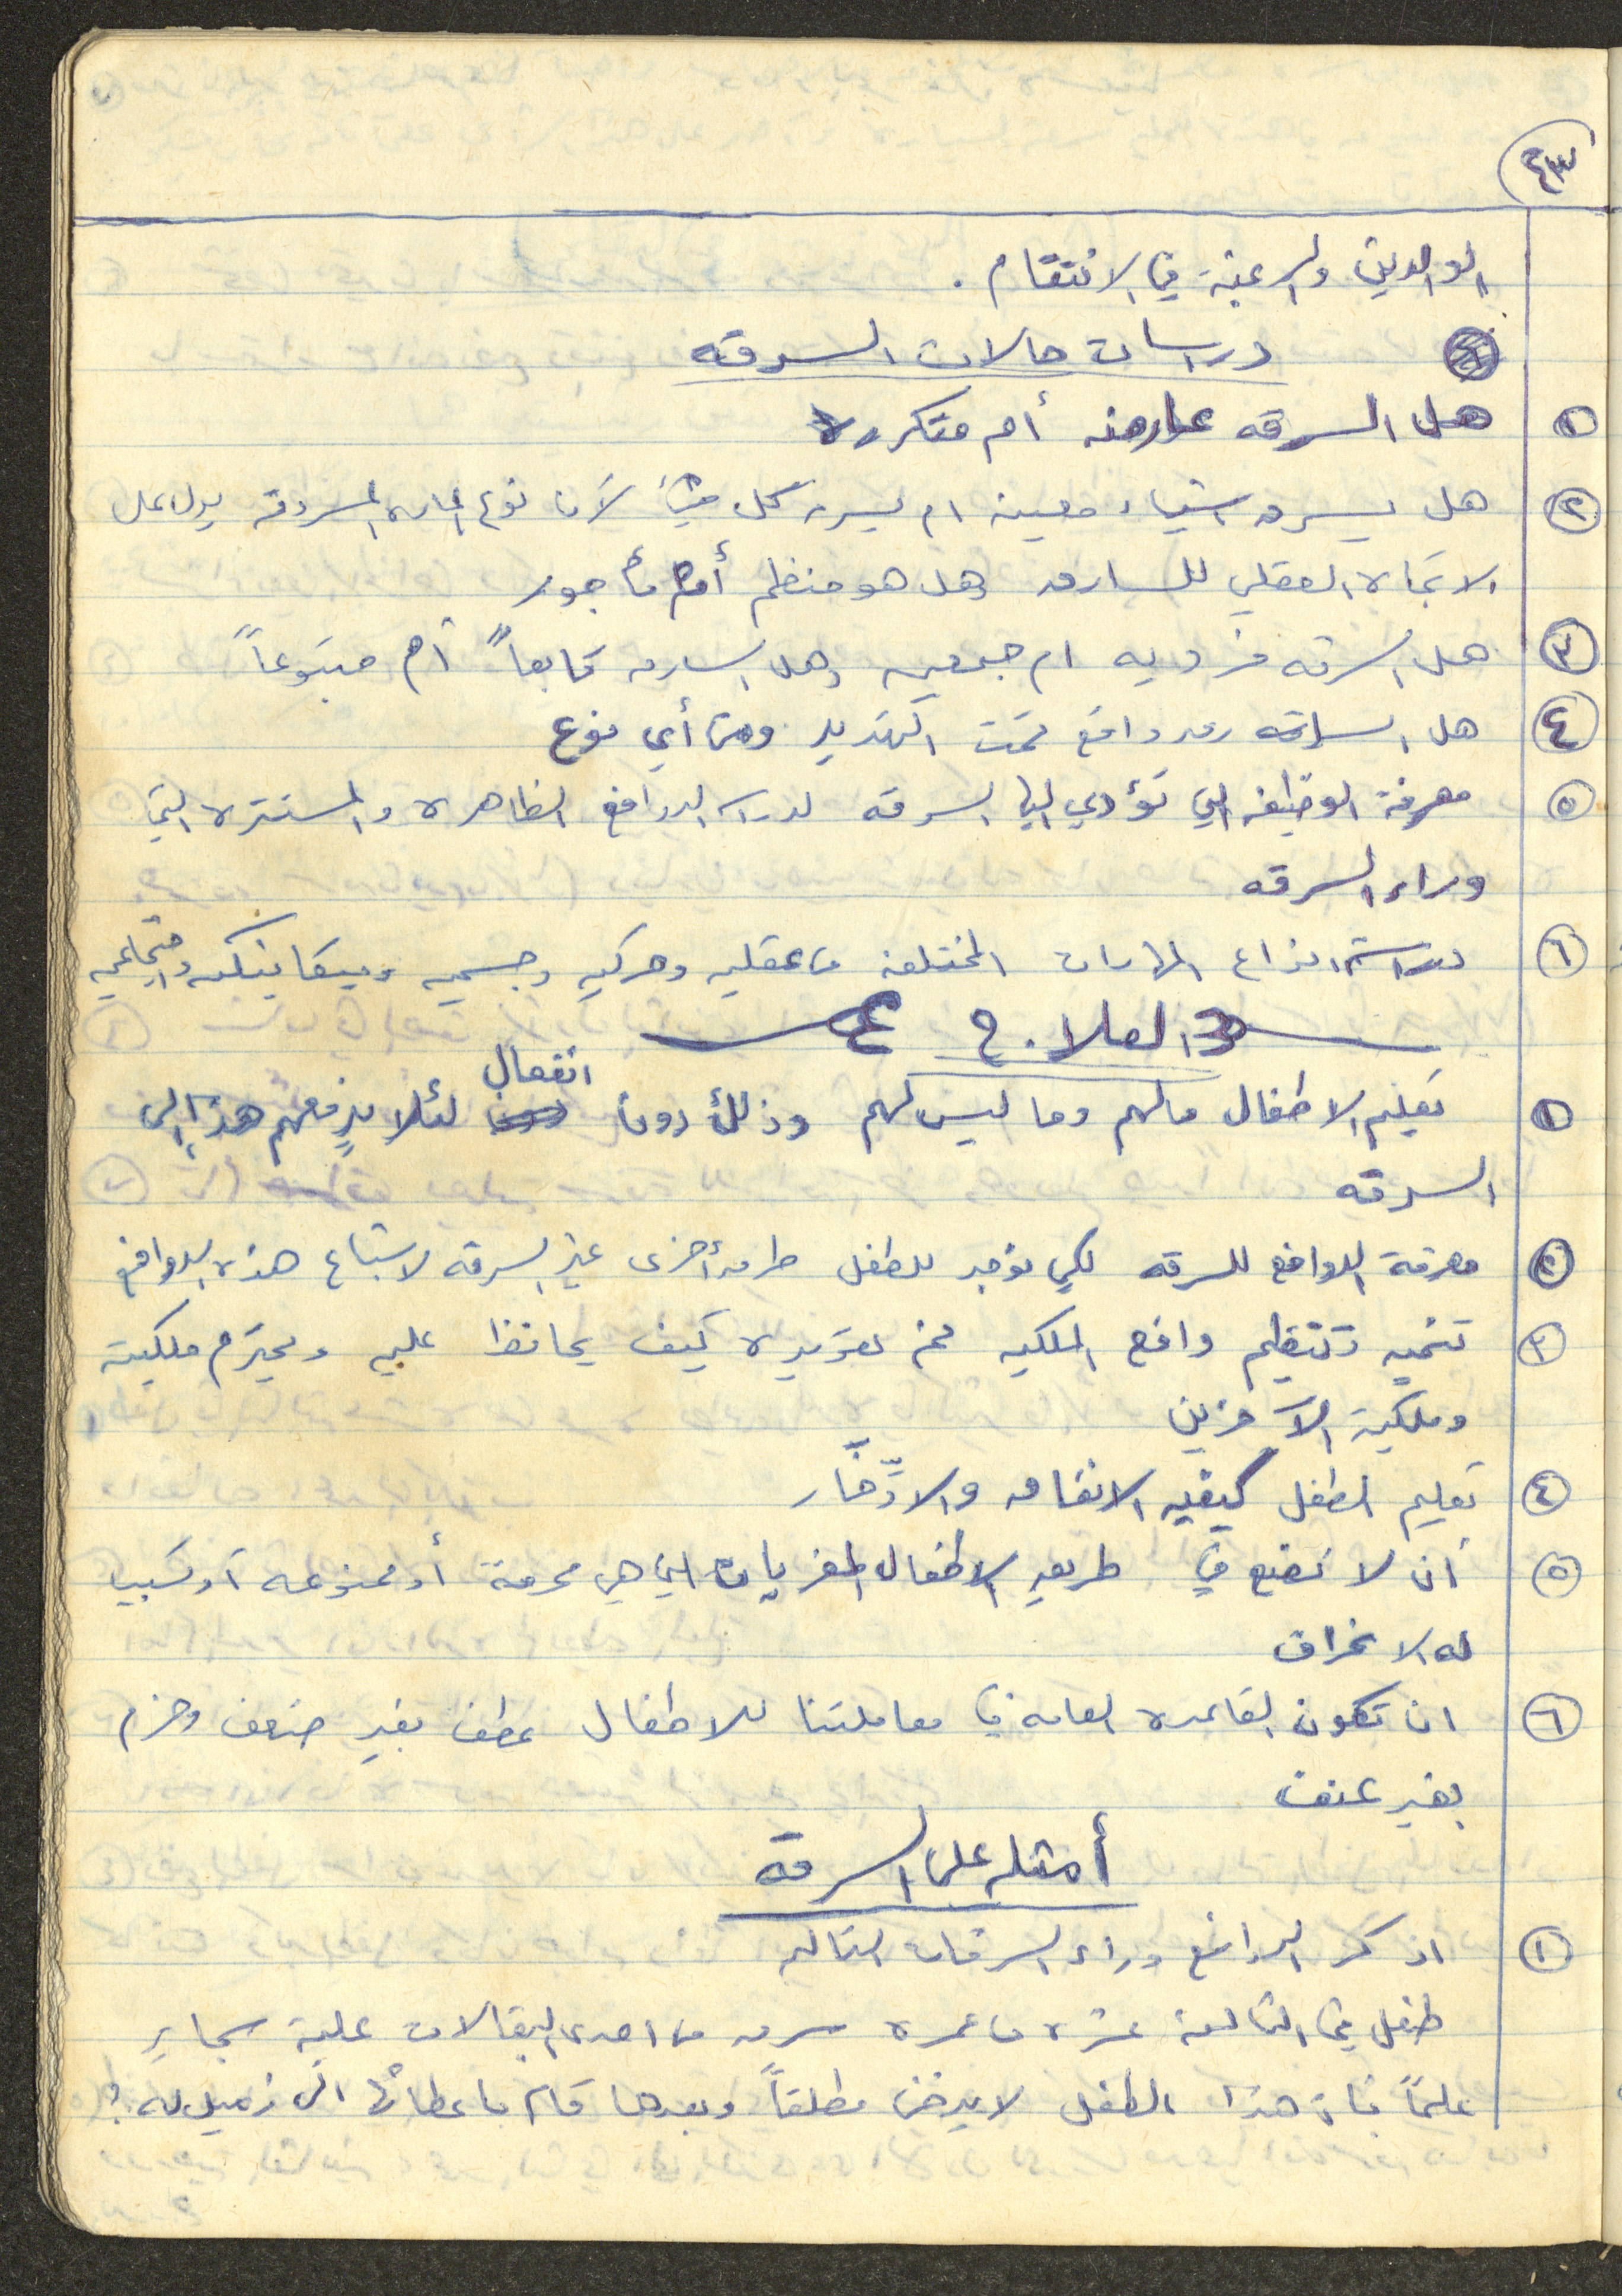 ٤٣
الوالدين والرغبة في الانتقام .
دراسات حالات السرقه
١ هل السرقه عارضه أم متكرره
٢ هل يسرق اشياء معينه ام يسرق كل شيئ لأن نوع الماده المسروقه يدل على
الاتجاه العقلي للسارق وهل هو منظم أم مأجور
٣ هل السرقه فرديه ام جمعيه وهل السارق تابعاً أم متبوعاً
٤ هل السارق واقع تحت التهديد ومن أي نوع
٥ معرفة الوظيفه التي تؤدي اليها السرقه لدراسه الدوافع الظاهره والمستتره التي
وراء السرقه
٦ دراسة انواع المهارات المختلفه من عقليه وحركيه وجسميه وميكانيكيه واجتماعيه
العلاج
١ تعليم الاطفال مالهم وما ليس لهم وذلك دون انفعال لئلا يدفعهم هذا إلى
السرقه
٢ معرفة الدوافع للسرقه لكي نوجد للطفل طرق أخرى غير السرقه لاشباع هذه الدوافع
٣ تنميه وتنظيم دافع الملكيه ثم تعويده كيف يحافظ عليه ويحترم ملكيته
وملكية الآخرين
٤ تعليم الطفل كيفيه الانفاق والادّخار
٥ أن لا نضع في طريق الاطفال المغريات التي هي محرمة أو ممنوعه أو تسبب
له الانحراف
٦ ان تكون القاعده العامه في معاملتنا للاطفال عطف بغير ضعف وحزم
بغير عنف
أمثله على السرقه
١ اذكر الدوافع وراء السرقات التاليه
طفل في الثالثة عشره من عمره سرق من احدى البقالات علبة سجاير
علماً بأن هذا الطفل لا يدخن مطلقاً وبعدها قام باعطائها الى زميل له ؟